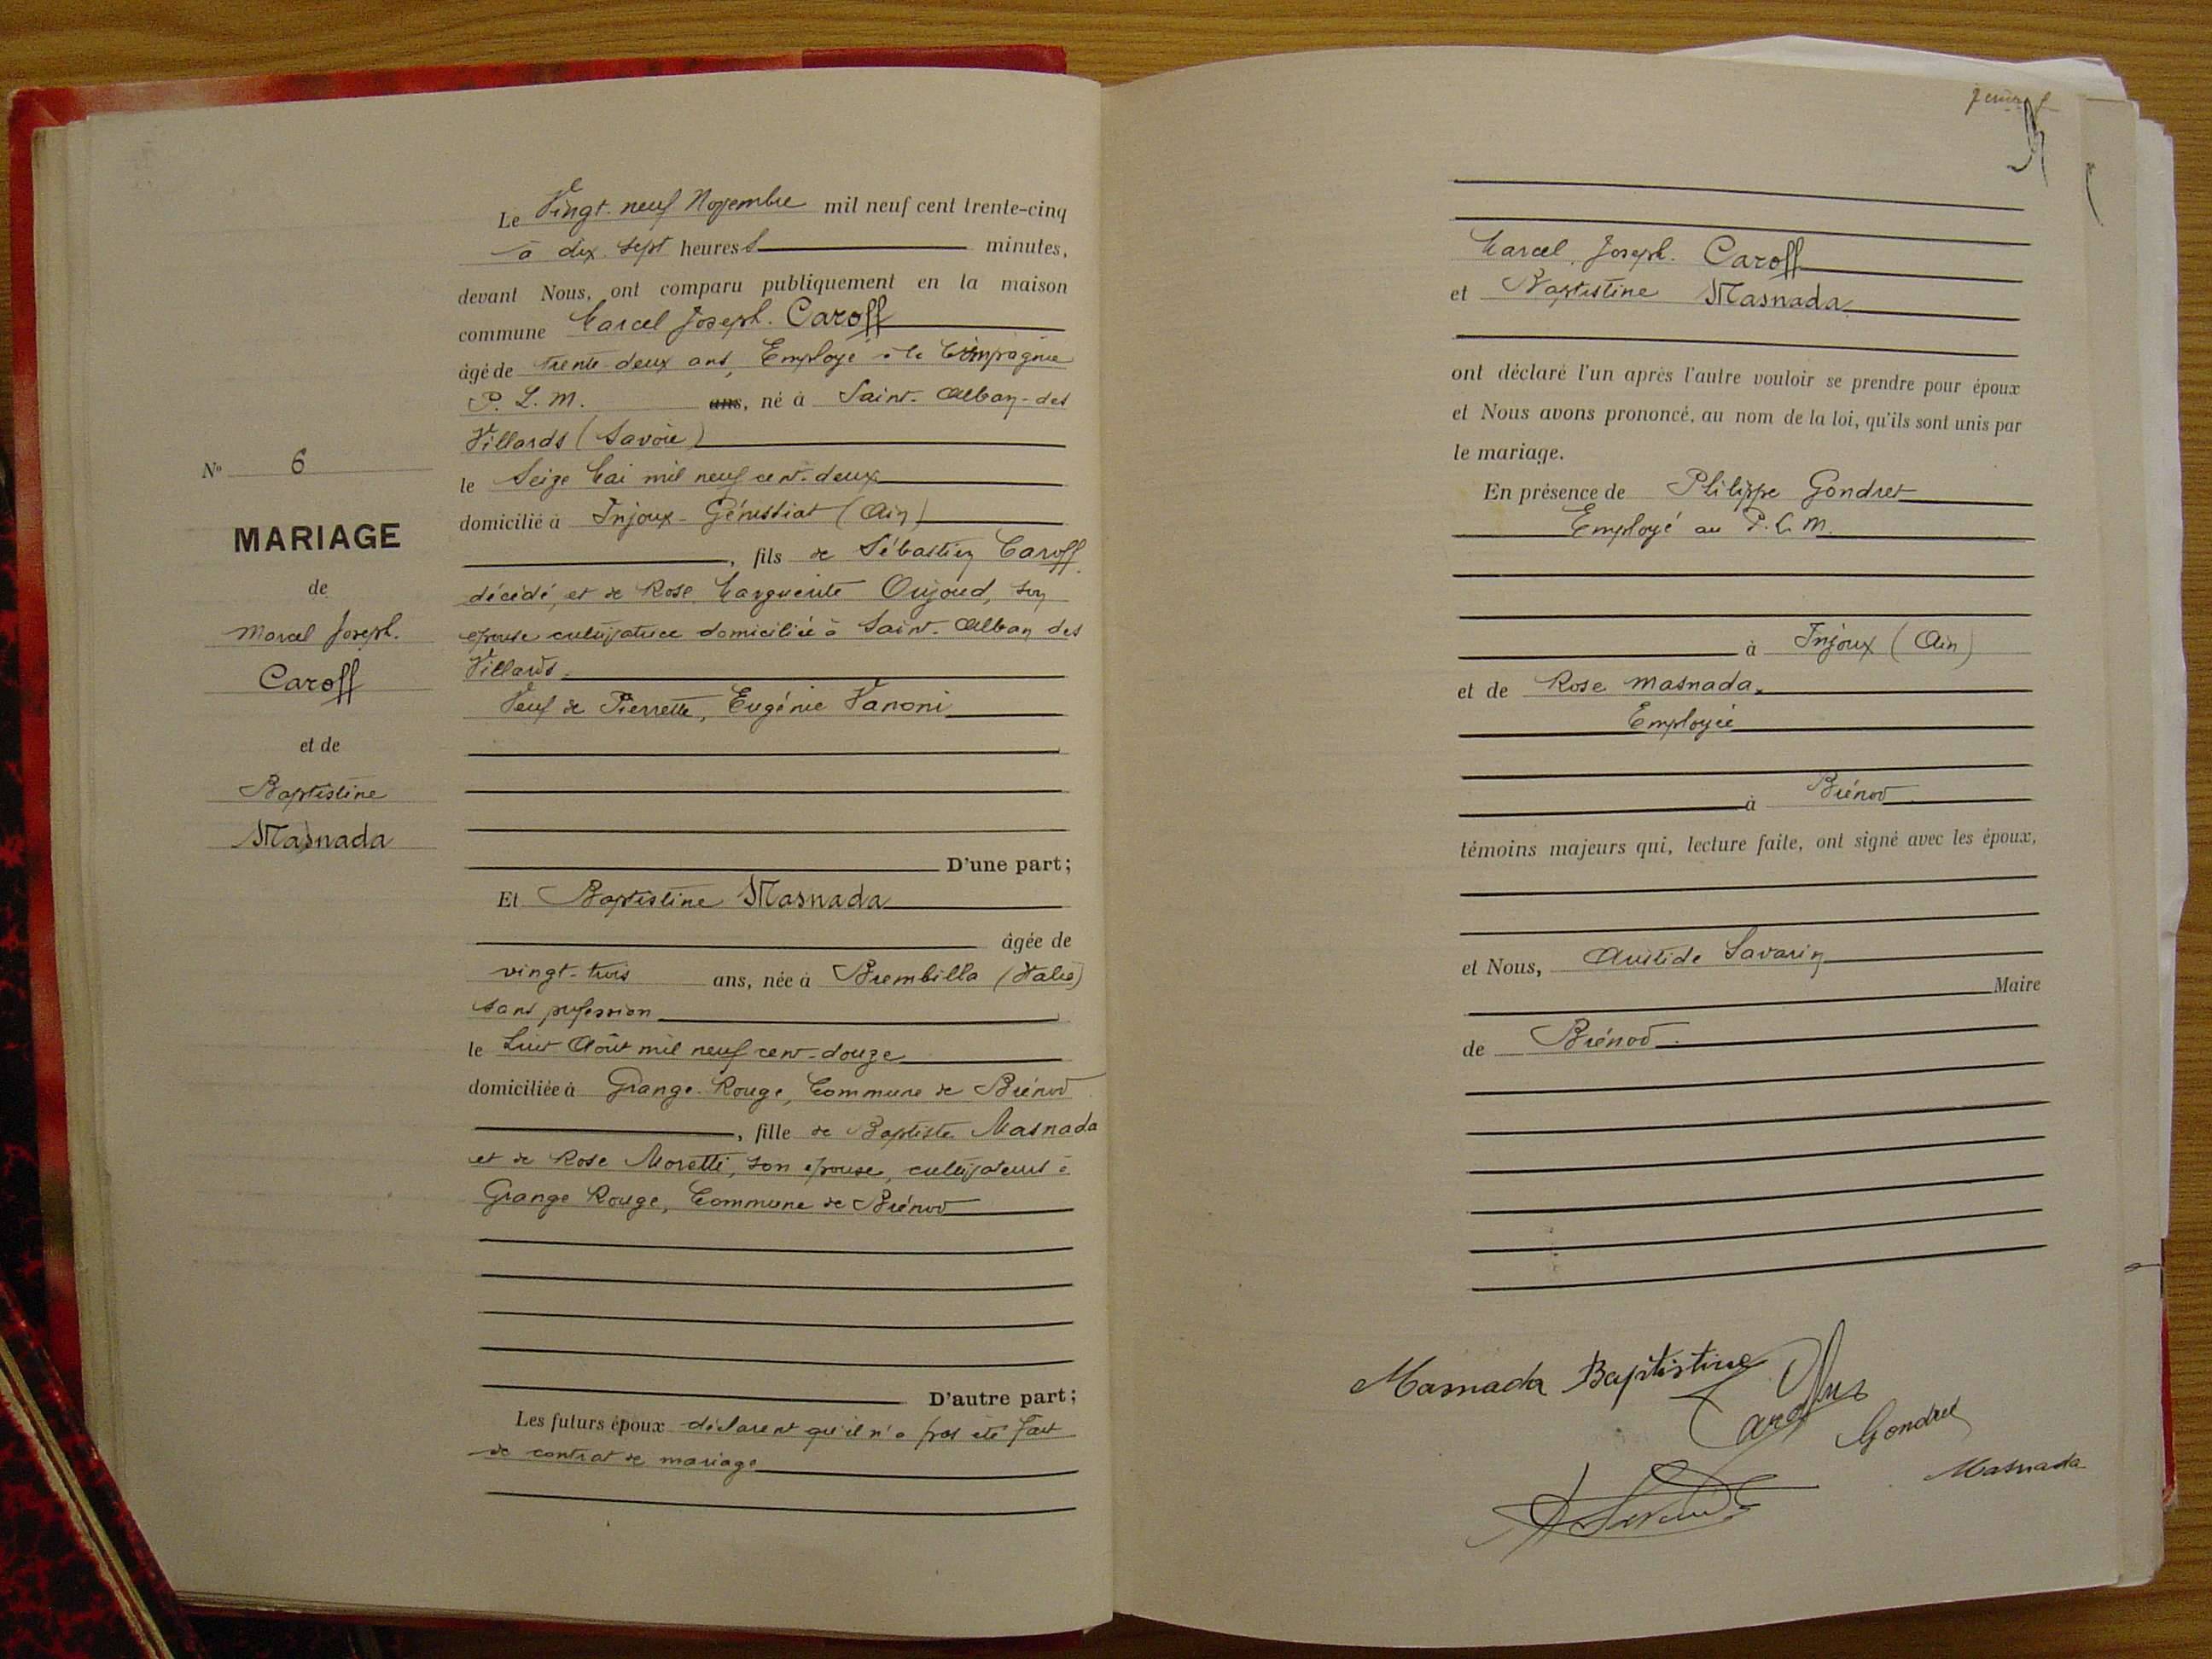 N° 6
MARIAGE
de
Marcel Joseph.
Caroff
et de
Baptistine
Masnada
Le Vingt-neuf Novembre mil neuf cent trente-cinq
à dix sept heures minutes,
devant Nous, ont comparu publiquement en la maison
commune Marcel Joseph. Caroff
âgé de trente-deux ans, Employé à la Compagnie
P. L. M. ans, né à Saint-Alban-des
Villards (Savoie)
le Seize Mai mil neuf cent-deux
domicilié à Injoux-Génissiat (Ain)
, fils de Sébastien Caroff
décédé, et de Rose Marguerite Oujoud, son
épouse cultivatrice domiciliée à Saint-Alban des
Villards.
Veuf de Pierrette, Eugénie Vanoni
D'une part;
Et Baptistine Masnada
âgée de
vingt-trois ans, née à Brembilla (Italie)
sans profession
le huit Août mil neuf cent-douze
domiciliée à Grange-Rouge, Commune de Brénod
, fille de Baptiste Masnada
et de Rose Moretti, son épouse, cultivateurs à
Grange Rouge, Commune de Brénod
D'autre part;
Les futurs époux déclarent qu'il n'a pas été fait
de contrat de mariage
Marcel Joseph. Caroff
et Baptistine Masnada
ont déclaré l'un après l'autre vouloir se prendre pour époux
et Nous avons prononcé, au nom de la loi, qu'ils sont unis par
le mariage.
En présence de Philippe Gondret
Employé au P.L.M.
à Injoux (Ain)
et de Rose Masnada
Employée
à Brénod
témoins majeurs qui, lecture faite, ont signé avec les époux,
et Nous, Aristide Savarin
Maire
de Brénod.
Masnada Baptistine
Caroff
Gondret
Masnada